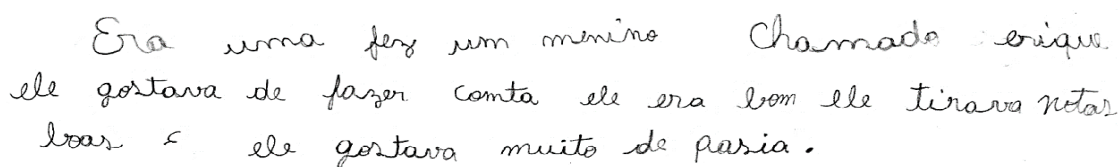 Era uma fez um menino chamado erique
ele gostava de fazer comta ele era bom ele tirava notas
boas e ele gostava muito de pasia.